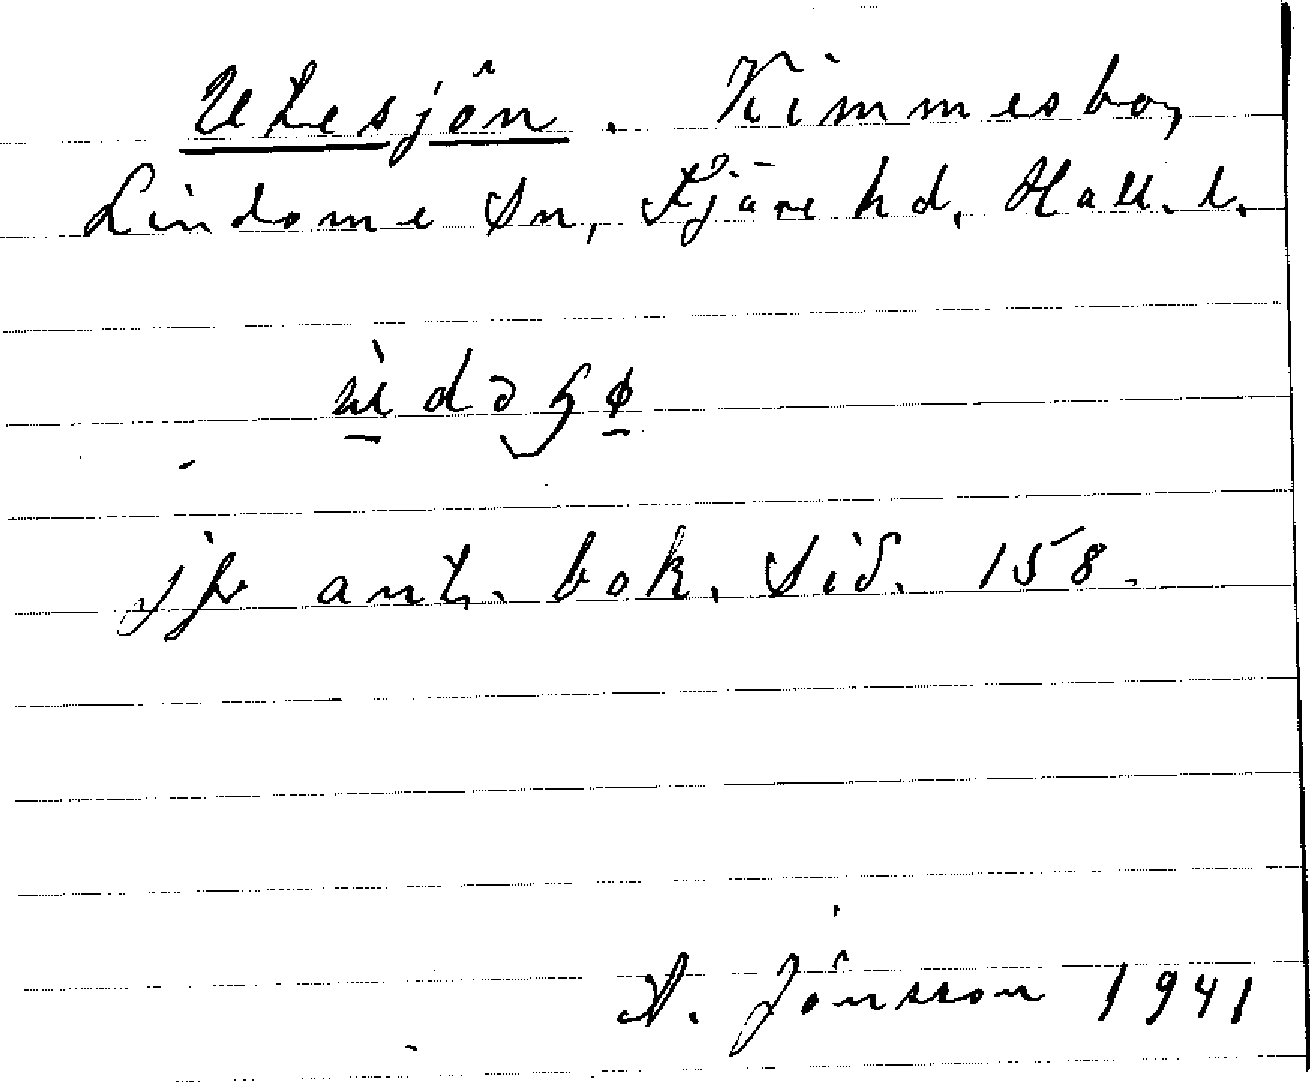 Utesjön. Kimmesbo,
Lindome Sn, Fjäre hd, Hall. l.
jfr ant. bok. Sid. 158.
A. Jönsson 1941